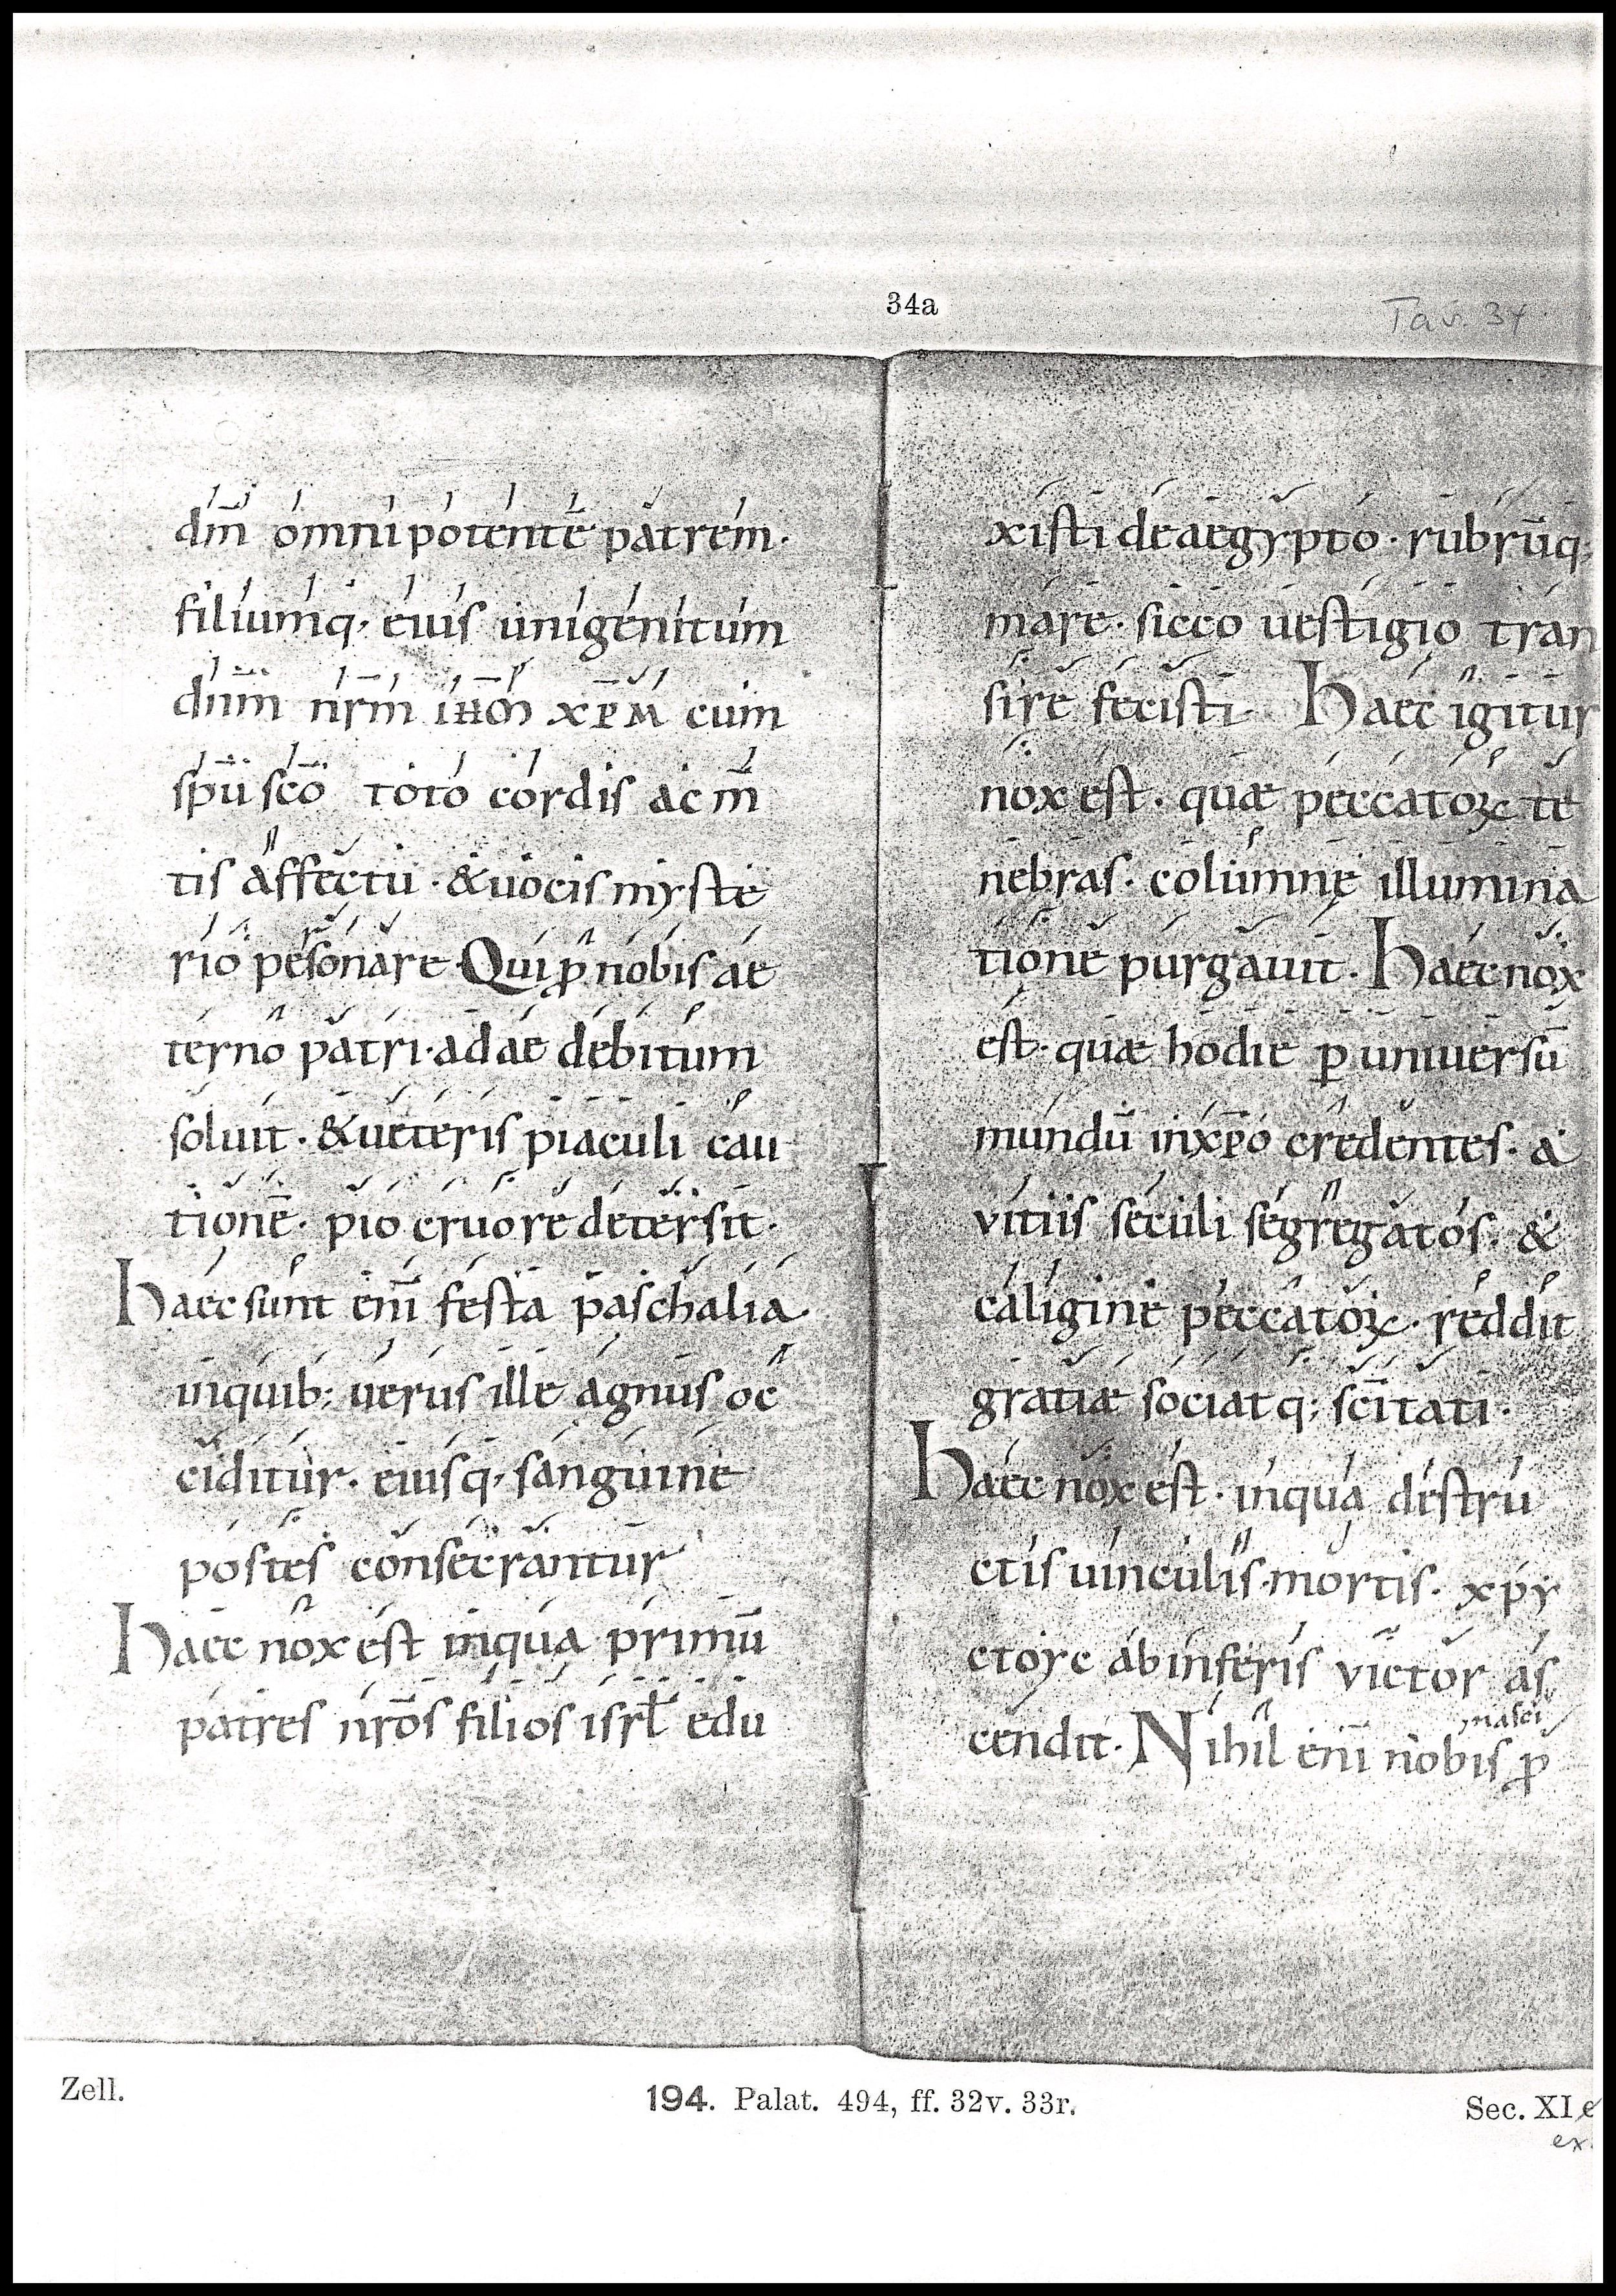 34a
Tav. 34
dm̄ omnipotentē patrem·
filiumq; eius unigenitum
dn̄m nr̄m ih̄m xp̄m cum
sp̄u sc̄o toto cordis ac m̄
tis affectu · & uocis myste
rio pesonare · Qui ꝓ nobis ae
terno patri · adae debitum
soluit · & ueteris piaculi cau
tionē · pio cruore detersit ·
Haec sunt eni̅ festa paschalia
inquib; uerus ille agnus oc
ciditur · eiusq; sanguine
postes consecrantur
Haec nox est inqua primū
patres nr̄os filios isrl̄ edu
xisti de aegypto · rubrūq;
mare · sicco uestigio tran
sire fecisti · Haec igitur
nox est · quae peccatoꝝ te
nebras · columnę illumina
tione purgauit · Haec nox
est · quae hodie ꝑ uniuersū
mundū inxp̄o credentes · a
vitiis seculi segregatos · &
caligine peccatoꝝ · reddit
gratiae sociatq; sc̄itati ·
Haec nox est · inqua destru
ctis uinculis mortis · xpy
ctoyc abinferis victor as
cendit · Nihil eni̅ nobis nasci ꝓ
Zell.
194. Palat. 494, ff. 32v. 33r.
Sec. XI
ex.